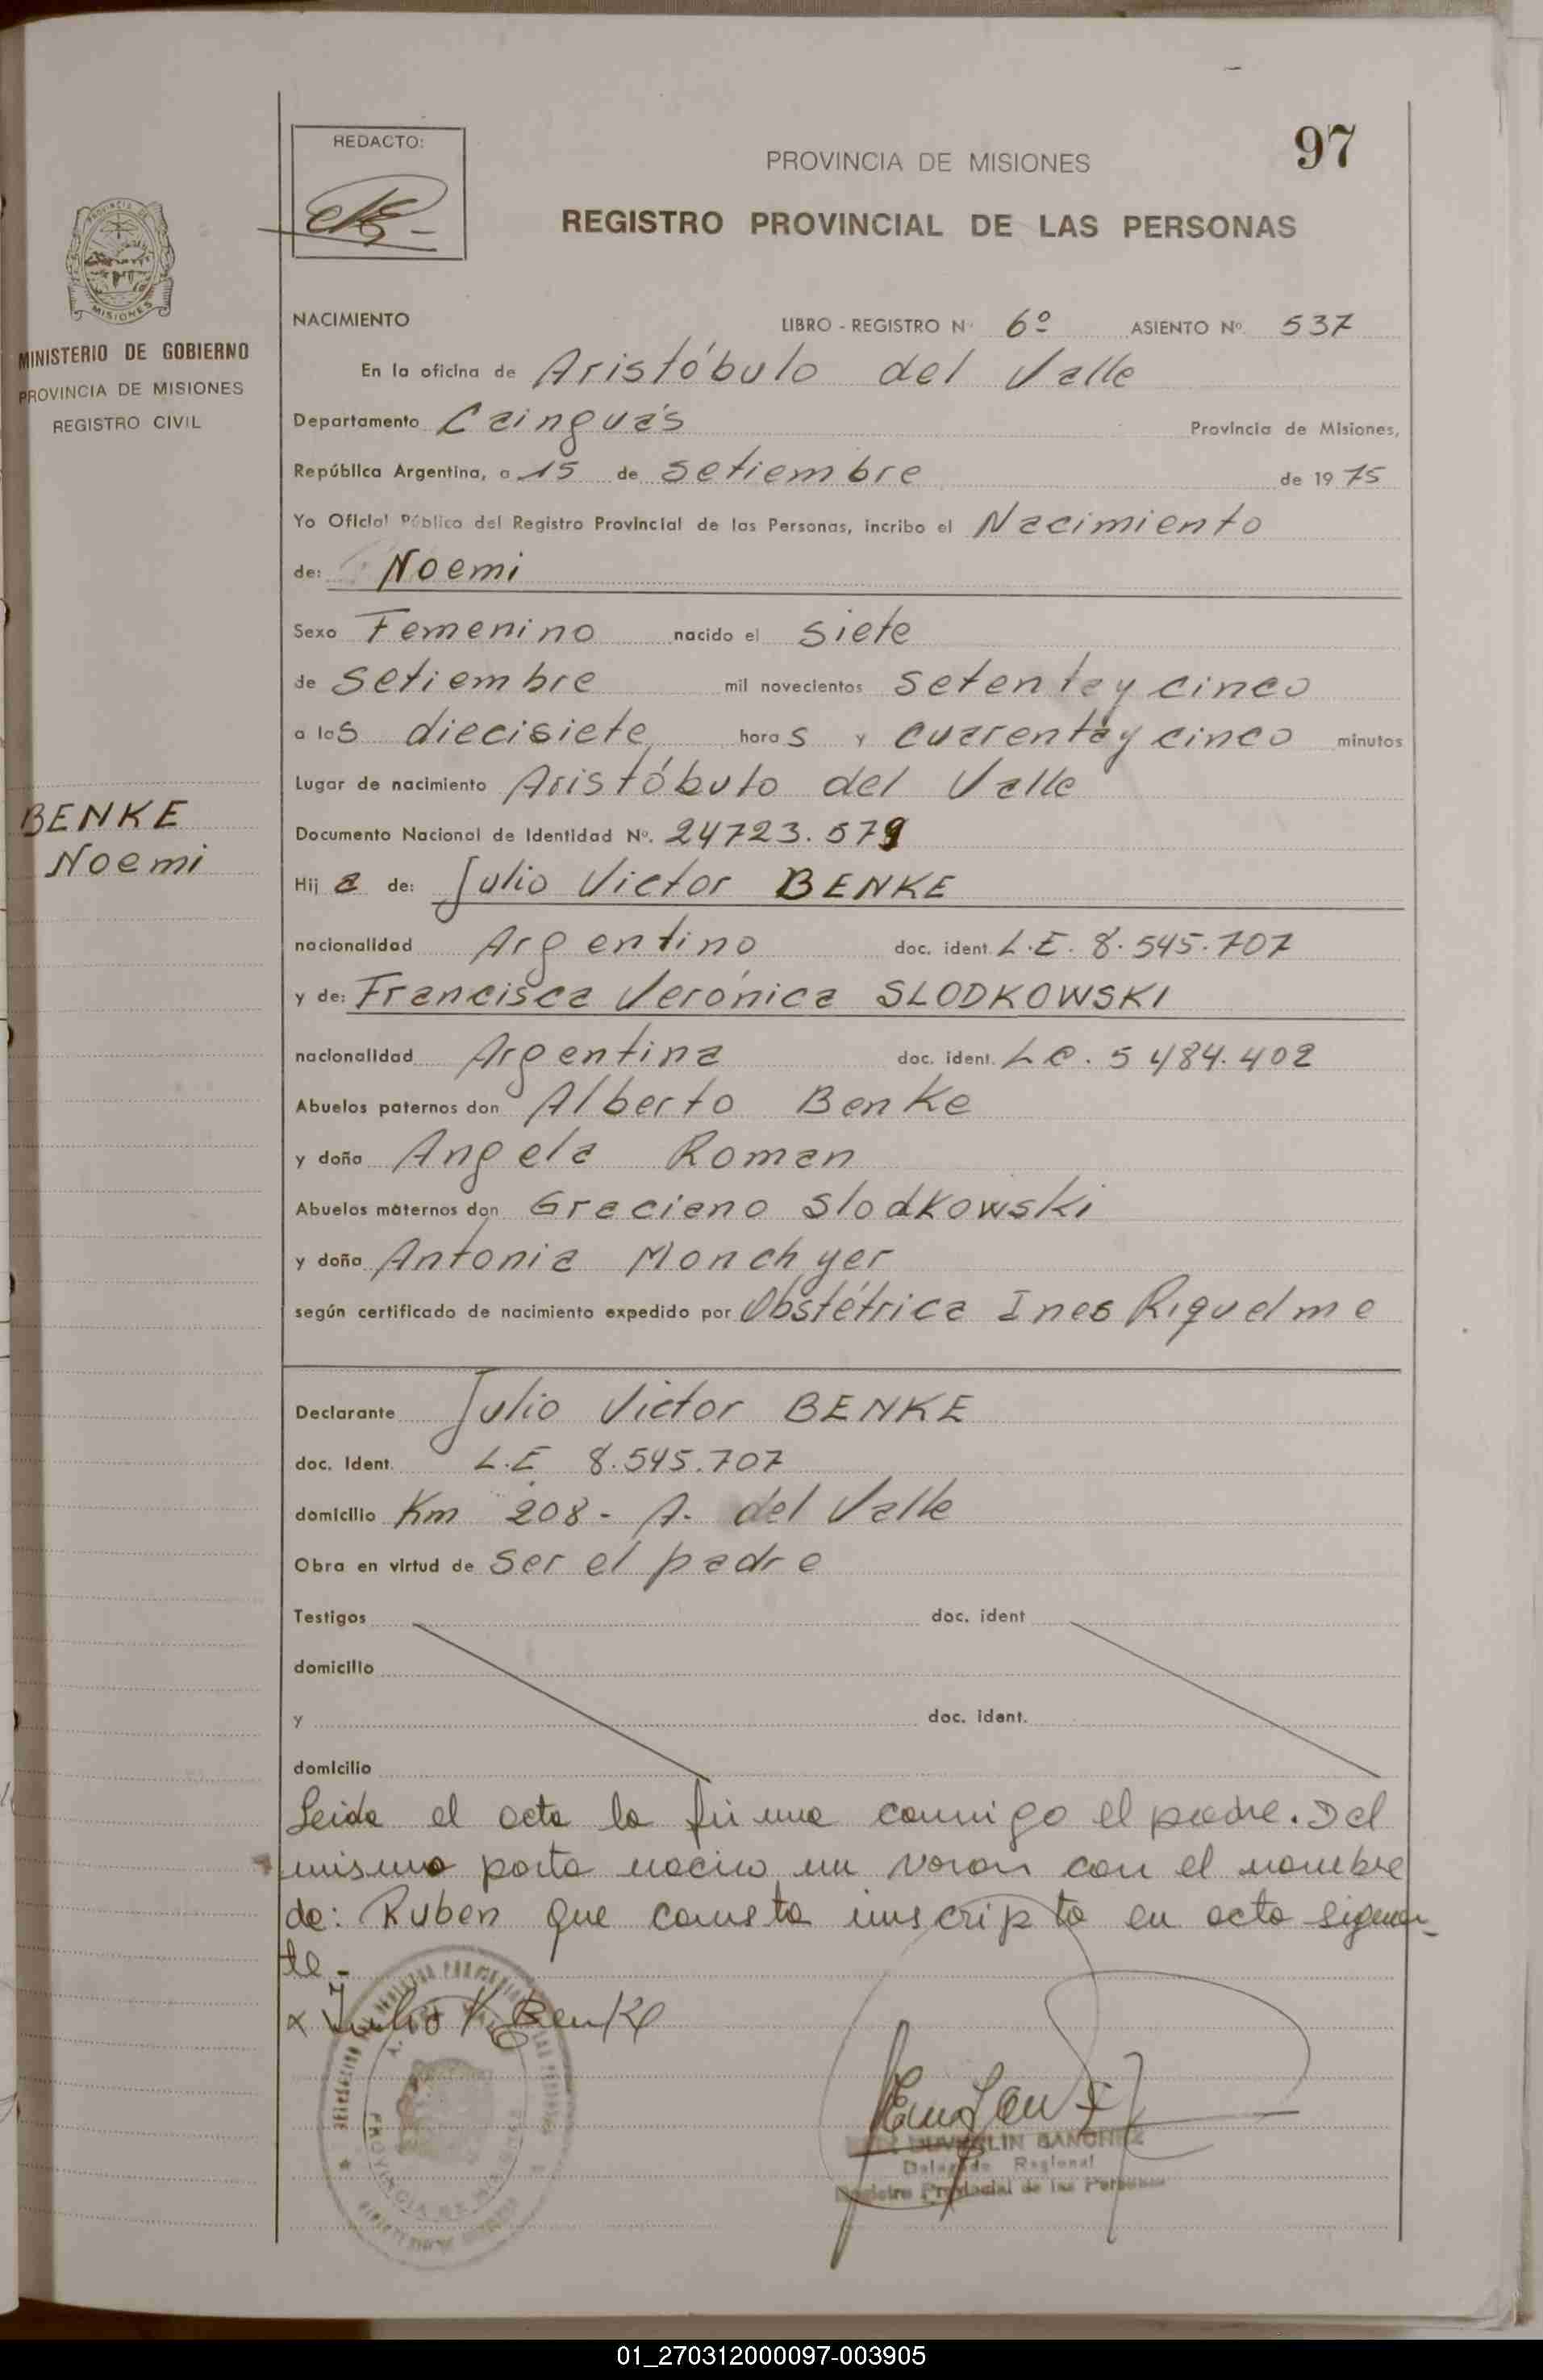 97
REDACTO:
PROVINCIA DE MISIONES
REGISTRO PROVINCIAL DE LAS PERSONAS
MISIONES
MINISTERIO DE GOBIERNO
PROVINCIA DE MISIONES
REGISTRO CIVIL
NACIMIENTO LIBRO - REGISTRO Nº 6º ASIENTO Nº 537
En la oficina de Aristóbulo del Valle
Departamento Cainguás Provincia de Misiones,
República Argentina, a 15 de setiembre de 1975
Yo Oficial Público del Registro Provincial de las Personas, incribo el Nacimiento
de: Noemi
Sexo Femenino nacido el siete
de setiembre mil novecientos setenta y cinco
a las diecisiete horas y cuarenta y cinco minutos
Lugar de nacimiento Aristóbulo del Valle
Documento Nacional de Identidad Nº. 24723.579
BENKE
Noemi
Hija de: Julio Victor BENKE
nacionalidad Argentino doc. ident. L.E. 8.545.707
y de: Francisca Verónica SLODKOWSKI
nacionalidad Argentina doc. ident. L C. 5 484.402
Abuelos paternos don Alberto Benke
y doña Angela Roman
Abuelos maternos don Graciano Slodkowski
y doña Antonia Monchyer
según certificado de nacimiento expedido por Obstétrica Ines Riquelme
Declarante Julio Victor BENKE
doc. Ident. L.E 8.545.707
domicilio Km 208 - A. del Valle
Obra en virtud de ser el padre
Testigos doc. ident
domicilio
y doc. ident.
domicilio
Leida el acta la firma conmigo el padre. Del
mismo parto nacio un varon con el nombre
de: Ruben que consta inscripto en acta siguien-
te -
x Julio V. Benke
PROVINCIA DE MISIONES
SANCHEZ
Delegado Regional
Registro Provincial de las Personas
01_270312000097-003905